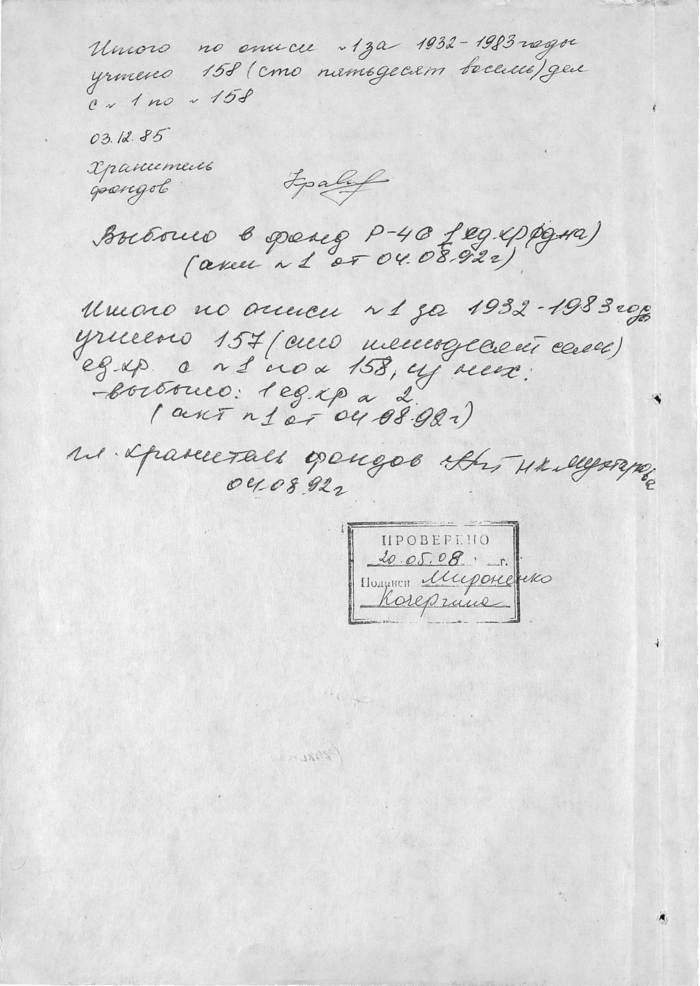 Итого по описи № 1 за 1932-1983 годы
учтено 158 (сто пятьдесят восемь) дел
с № 1 по № 158
03.12.85
Хранитель
фондов
Выбыло в фонд Р-40 1 ед.хр (одна)
(акт № 1 от 04.08.92 г)
Итого по описи № 1 за 1932-1983 годы
учтено 157 (сто пятьдесят семь)
ед.хр. с № 1 по № 158, из них:
-выбыло: 1 ед.хр № 2.
(акт № 1 от 04.08.92 г)
гл. хранитель фондов Н.К. Мухтарова
04.08.92 г
ПРОВЕРЕНО
20.05.08. г.
Подписи Мироненко
Кочергина